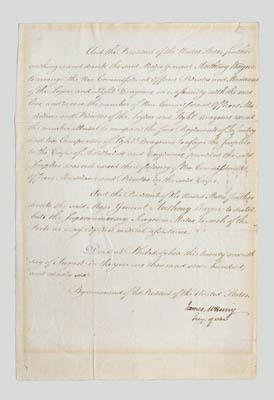 And the President of the United States further
authorizes and directs the said Major General Anthony Wayne
to arrange the Non Commissioned Officers, Privates and Musicians
of the Legion and Light Dragoons in conformity with the said
law, and to cause the number of Non Commissioned Officers, Mu-
sicians and Privates of the Legion and Light Dragoons beyond
the number sufficient to compose the four Regiments of Infantry
and two Companies of Light Dragoons to
to the Corps of Artillerists and Engineers provided the said
surplus shall not exceed the deficiency of Non Commissioned
Officers, Musicians and Privates in the said Corps.
And the President of the United States further
directs the said Major General Anthony Wayne to
the Supernumerary Surgeons Mates to such of the
Posts as may require medical assistance.
Done at Philadelphia this twenty seventh
day of August in the year one thousand seven hundred
and ninety six.
By command of the President of the United States.
James McHenry
Secy. of War